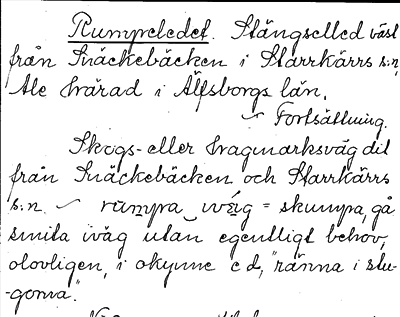 Rumpeledet. Stängselled väst
från Snäckebäcken i Starrkärrs s:n,
Ale härad i Älfsborgs län.
Fortsättning.
Skogs- eller hagmarksväg dit
från Snäckebäcken och Starrkärrs
s:n. rumpa iväg = skumpa, gå
smita iväg utan egentligt behov,
olovligen, i okynne e d, "ränna i stu-
gorna."